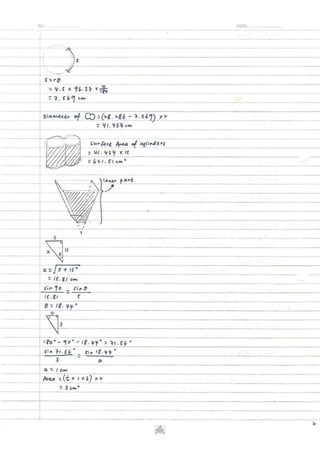 NO.
DATE
s
S = rθ
= 4.5 × 96.37 × π/180
= 7.569 cm
Diameter of = (28.286 - 7.569) × 2
= 41.434 cm
Surface Area of cylinders
= 41.434 × 15
= 621.51 cm²
Lower part
5
x 15
θ
x = √5 + 15²
= 15.81 cm
sin 90 / 15.81 = sin θ / 5
θ = 18.44°
a
3
180° - 90° - 18.44° = 71.56°
sin 71.56° / 3 = sin 18.44° / a
a = 1 cm
Area = (½ × 1 × 3) × 2
= 3 cm²
2